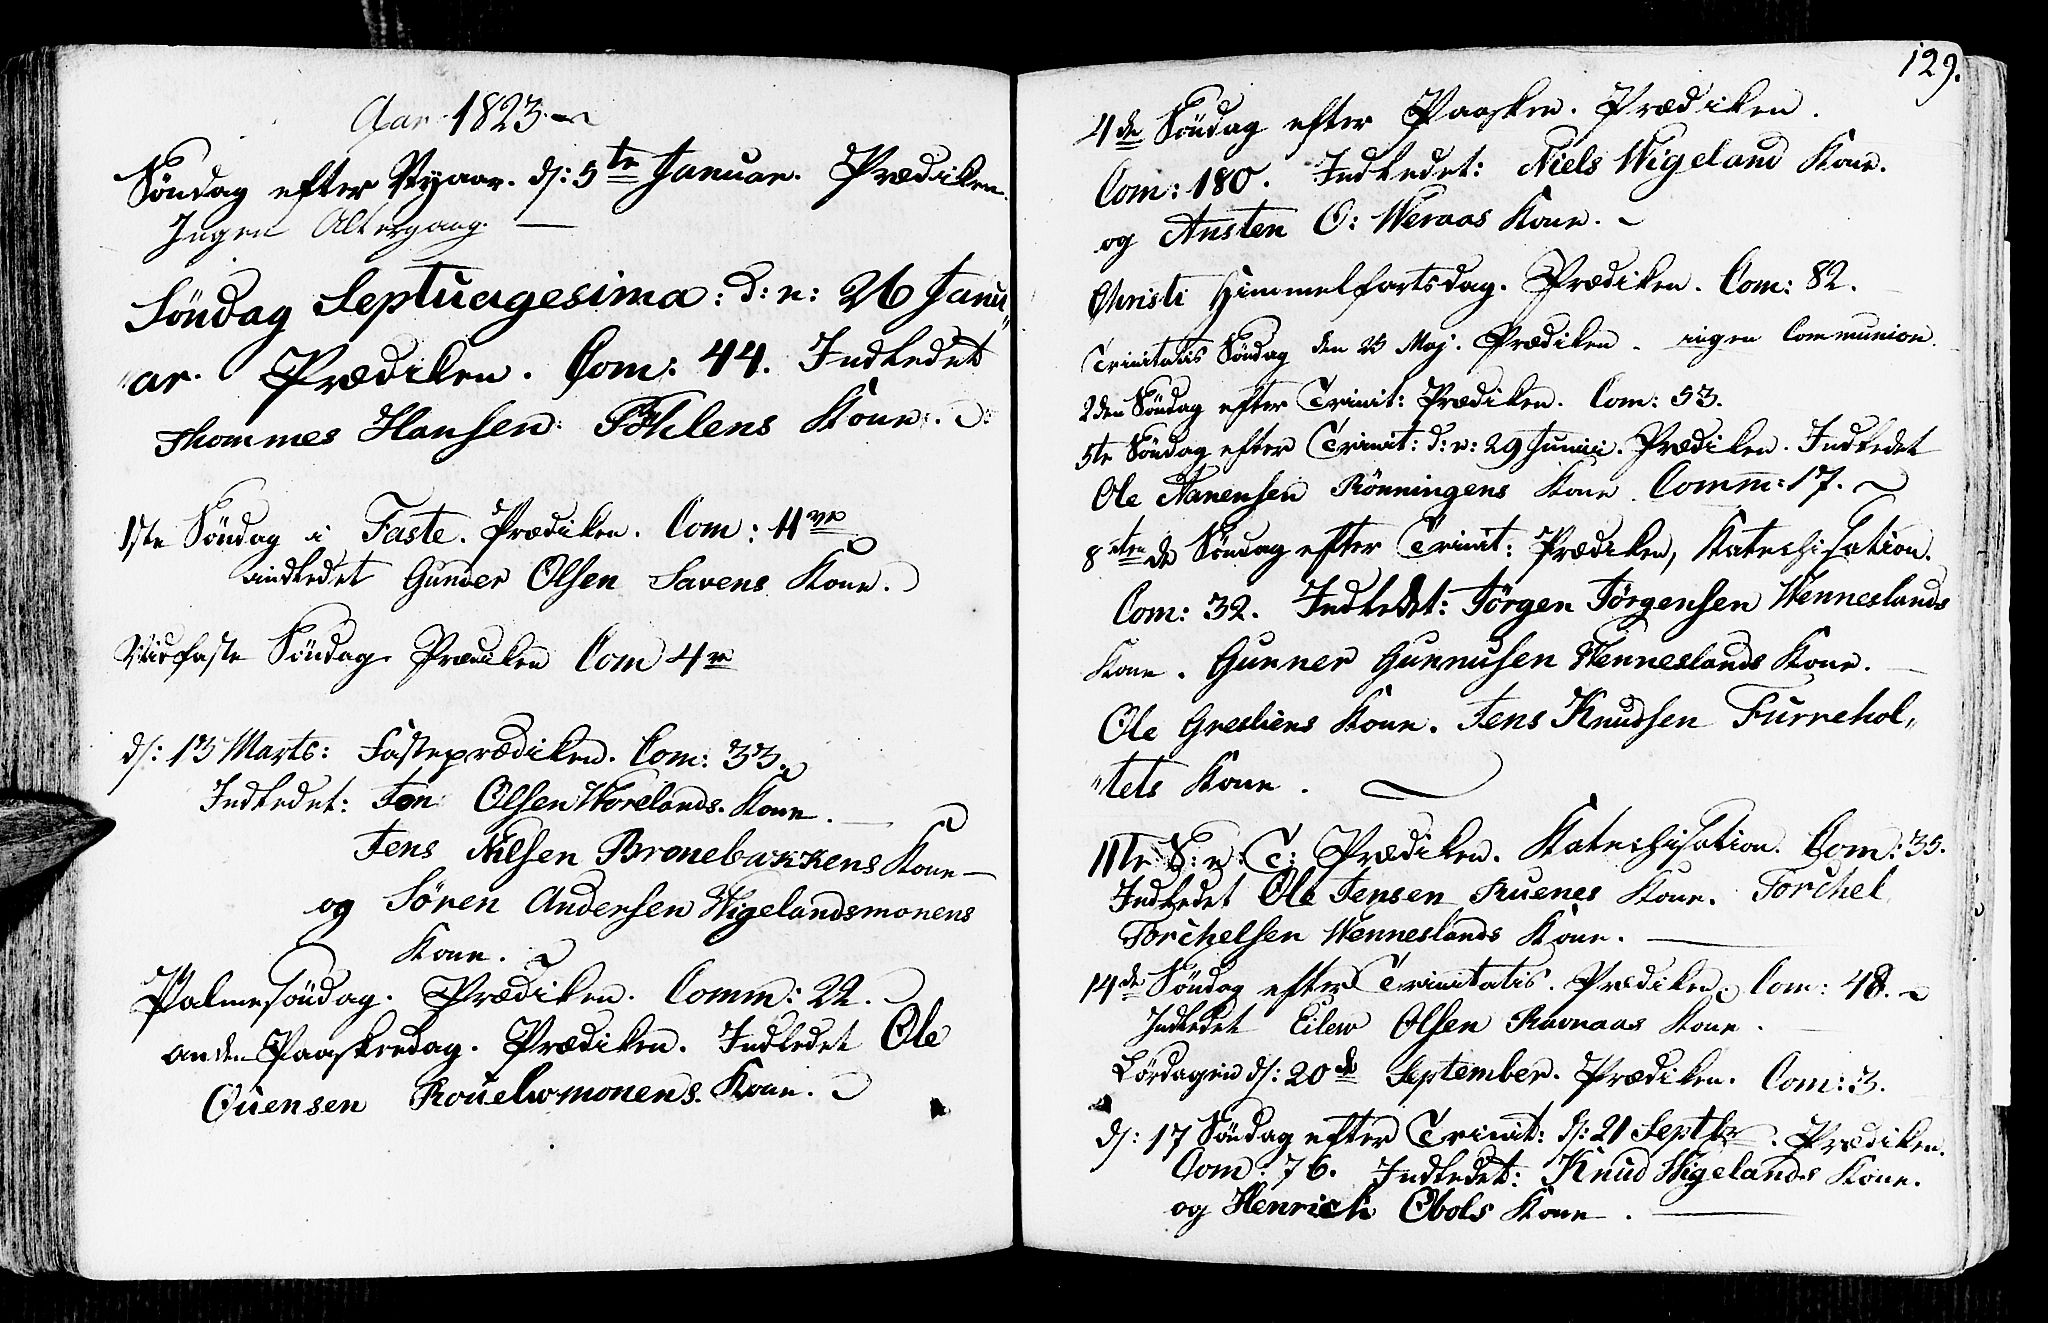 Aar 1823
Søndag efter Nyaar. d: 5te Januar. Prædiken.
Ingen Altergang.
Søndag Septuagesima: d: n: 26 Janu„
„ar. Prædiken. Com: 44. Indledet
Thommes Hansen Konn.
1ste Søndag i Faste. Prædiken. Com: 11ve
indledet Gunder Olsen Savens Kone.
Midfaste Søndag Prædiken Com 4re
d: 13 Marts: Fasteprædiken. Com: 33.
Indledet: Jon Olsen Worelands Kone.
Jens Nilsen Bronebakkens Kone
og Sören Andersen Wigelandsmonens
Kone.
Palmesöndag. Prædiken. Comm: 22.
anden Paaskedag. Prædiken. Indledet Ole
Ouensen Kone.
129.
4de Söndag efter Paasken. Prædiken.
Com: 180. Indledet: Niels Wigeland Kone.
og Austen O: Weraas Kone.
Christi Himmelfartsdag. Prædiken. Com: 82.
Trinitatis Søndag den Maj. Prædiken. ingen Communion.
2den Söndag efter Trinit: Prædiken. Com: 53.
5te Söndag efter Trinit: d: n: 29 Junii. Prædiken. Indledet
Ole Nanensen Rönningens Kone. Comm: 17.
8 de Söndag efter Trinit: Prædiken, Katechisation.
Com: 32. Indledet: Jörgen Jörgensen Wenneslands
Kone. Gunner Gunnusen Wenneslands Kone.
Ole Greeliens Kone. Jens Knudsen Furrehol„
„tets Kone.
11te S: e: T: Prædiken. Katechisation. Com: 35.
Indledet Ole Jensen Ruenes Kone. Torchel
Torchelsen Wenneslands Kone.
14de Söndag efter Trinitatis. Prædiken. Com: 48.
Indledet Eilew Olsen Ravnaas Kone.
Lördagen d: 20de September. Prædiken. Com: 3.
d: 17 Söndag efter Trinit: d: 21 Septbr. Prædiken.
Com: 76. Indledet: Knud Wigelands Kone.
og Henrich Obols Kone.